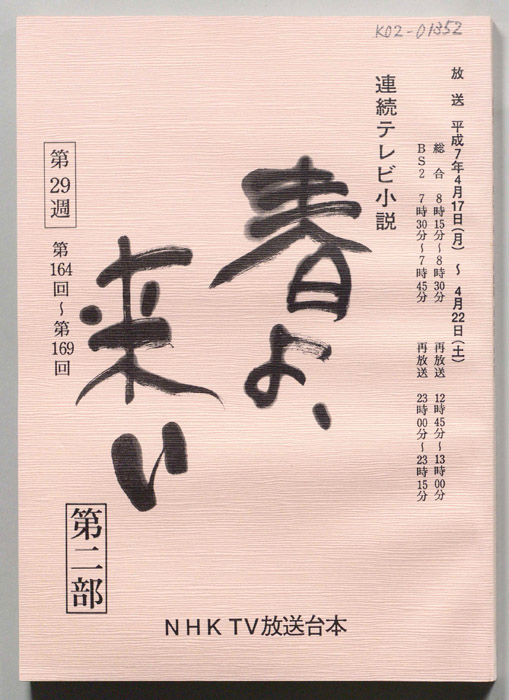 K02-01352
放送 平成7年4月17日(月) ～ 4月22日(土)
総合 8時15分～8時30分 再放送 12時45分～13時00分
BS2 7時30分～7時45分 再放送 23時00分～23時15分
連続テレビ小説
春よ、
来い
第29週
第164回～第169回
第二部
NHK TV放送台本